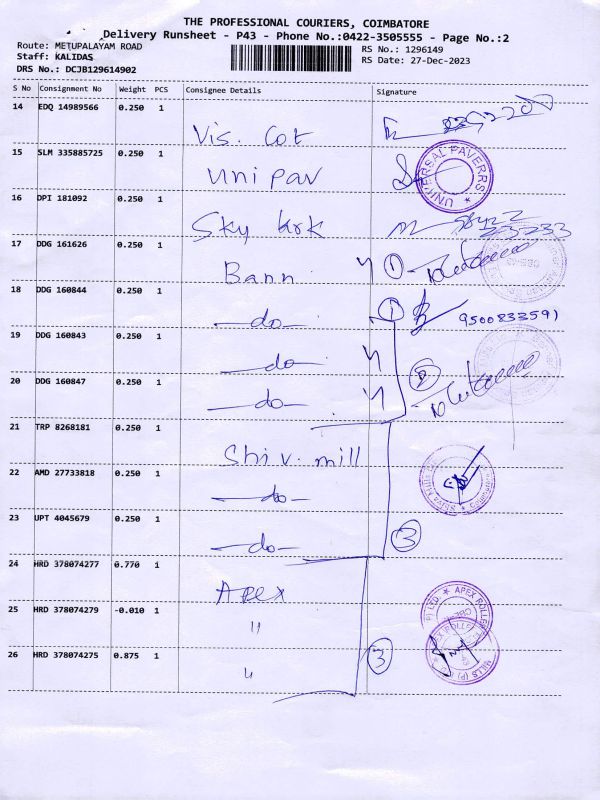 THE PROFESSIONAL COURIERS, COIMBATORE
Delivery Runsheet - P43 - Phone No.:0422-3505555 - Page No.:2
Route: METUPALAYAM ROAD
RS No.: 1296149
Staff: KALIDAS
RS Date: 27-Dec-2023
DRS No.: DCJB129614902
S No Consignment No Weight PCS Consignee Details Signature
14 EDQ 14989566 0.250 1
Vis. Cot
15 SLM 335885725 0.250 1
Unipav
UNIVERSAL PAVERRS
16 DPI 181092 0.250 1
Sky
17 DDG 161626 0.250 1
Bann 1
18 DDG 160844 0.250 1
-do- 1 9500833591
19 DDG 160843 0.250 1
-do-
20 DDG 160847 0.250 1
-do- 2
21 TRP 8268181 0.250 1
Shiv. mill
22 AMD 27733818 0.250 1
-do-
23 UPT 4045679 0.250 1
-do- 3
24 HRD 378074277 0.770 1
Apex
25 HRD 378074279 -0.010 1
"
26 HRD 378074275 0.875 1
" 3